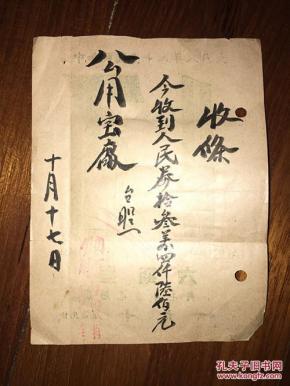 收條
今收到人民券拾叁万四仟陸佰元
公用宝厰
台照
十月十七日
孔夫子旧书网